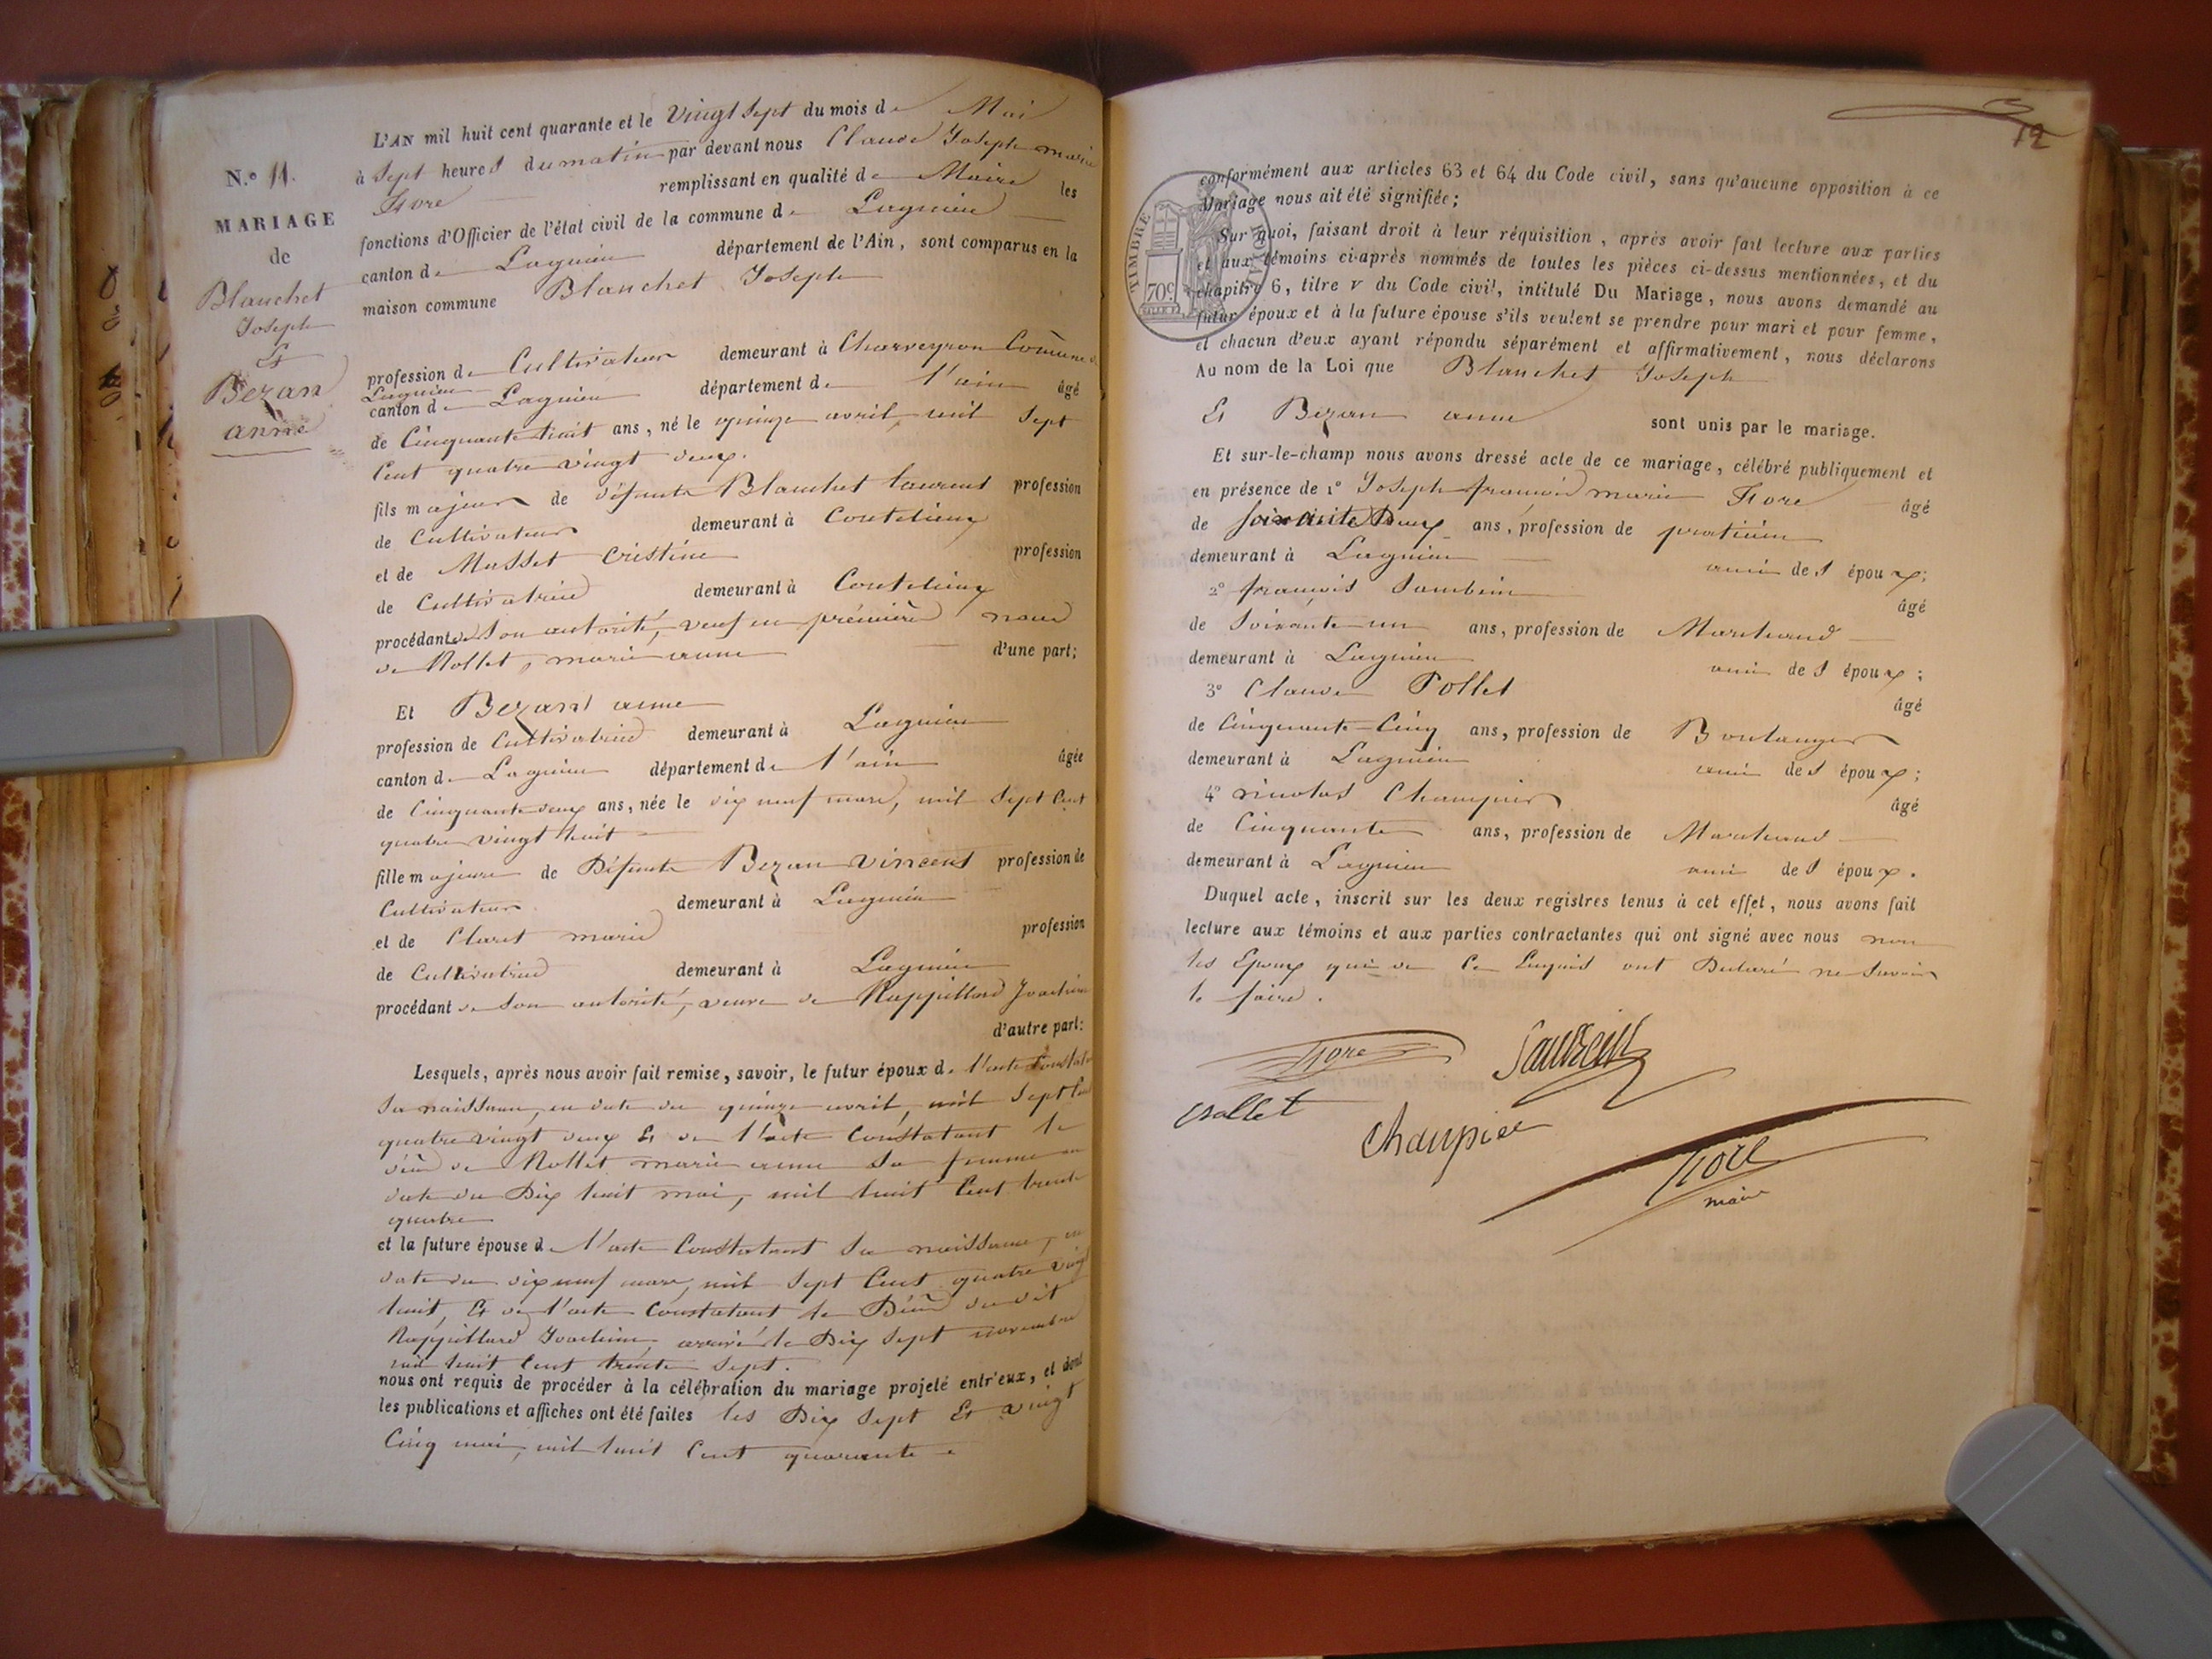 N.º 11.
MARIAGE
de
Blanchet
Joseph
Et
Bezan
anne
L'AN mil huit cent quarante et le Vingt Sept du mois de Mai
à Sept heures du matin par devant nous Claude Joseph marie
remplissant en qualité de Maire les
fonctions d'Officier de l'état civil de la commune de Lagnieu
canton de Lagnieu département de l'Ain, sont comparus en la
maison commune Blanchet Joseph
profession de Cultivateur demeurant à Charveyron Commune de
Lagnieu
canton de Lagnieu département de l'ain âgé
de Cinquante huit ans, né le quinze avril, mil Sept
Cent quatre vingt deux.
fils majeur de défunts Blanchet Laurent profession
de Cultivateur demeurant à Contelieux
et de Musset Cristine profession
de Cultivatrice demeurant à Contelieux
procédant de Son autorité, veuf en première noce
de Mollet, marie anne d'une part;
Et Bezan anne
profession de Cultivatrice demeurant à Lagnieu
canton de Lagnieu département de l'ain âgée
de Cinquante deux ans, née le dix neuf mars, mil Sept Cent
quatre vingt huit
fille majeure de Défunts Bezan Vincent profession de
Cultivateur demeurant à Lagnieu
et de Claret marie profession
de Cultivatrice demeurant à Lagnieu
procédant de Son autorité, veuve de Rappillard Joachim
d'autre part:
Lesquels, après nous avoir fait remise, savoir, le futur époux de l'acte Constatant
Sa naissance, en date du quinze avril, mil Sept Cent
quatre vingt deux Et de l'acte Constatant le
décès de Mollet marie anne Sa femme en
date du Dix huit mai, mil huit Cent trente
quatre
et la future épouse de l'acte Constatant Sa naissance, en
date du dix neuf mars, mil Sept Cent quatre vingt
huit, Et de l'acte Constatant le Décès du dit
Rappillard Joachim, arrivé le Dix Sept novembre
mil huit Cent trente Sept.
nous ont requis de procéder à la célébration du mariage projeté entr'eux, et dont
les publications et affiches ont été faites les Dix Sept Et vingt
Cinq mai, mil huit Cent quarante
12
TIMBRE ROYAL
70c
conformément aux articles 63 et 64 du Code civil, sans qu'aucune opposition à ce
Mariage nous ait été signifiée;
Sur quoi, faisant droit à leur réquisition, après avoir fait lecture aux parties
et aux témoins ci-après nommés de toutes les pièces ci-dessus mentionnées, et du
chapitre 6, titre v du Code civil, intitulé Du Mariage, nous avons demandé au
futur époux et à la future épouse s'ils veulent se prendre pour mari et pour femme,
et chacun d'eux ayant répondu séparément et affirmativement, nous déclarons
Au nom de la Loi que Blanchet Joseph
Et Bezan anne sont unis par le mariage.
Et sur-le-champ nous avons dressé acte de ce mariage, célébré publiquement et
en présence de 1º Joseph françois marie âgé
de Soixante Deux ans, profession de praticien
demeurant à Lagnieu ami des époux;
2º françois âgé
de Soixante un ans, profession de Marchand
demeurant à Lagnieu ami des époux;
3º Claude Pollet âgé
de Cinquante-Cinq ans, profession de Boulanger
demeurant à Lagnieu ami des époux;
4º nicolas Charpier âgé
de Cinquante ans, profession de Marchand
demeurant à Lagnieu ami des époux.
Duquel acte, inscrit sur les deux registres tenus à cet effet, nous avons fait
lecture aux témoins et aux parties contractantes qui ont signé avec nous non
les Epoux qui de Ce Enquis ont Déclaré ne Savoir
le faire.
Charpier
maire